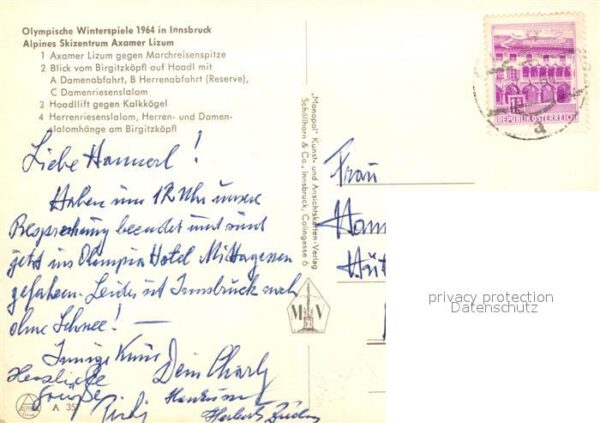 Olympische Winterspiele 1964 in Innsbruck
Alpines Skizentrum Axamer Lizum
1 Axamer Lizum gegen Marchreisenspitze
2 Blick vom Birgitzköpfl auf Hoadl mit
A Damenabfahrt, B Herrenabfahrt (Reserve),
C Damenriesenslalom
3 Hoadllift gegen Kalkkögel
4 Herrenriesenslalom, Herren- und Damen-
slalomhänge am Birgitzköpfl
Liebe Hannerl!
Haben um 12 Uhr unsere
Besprechung beendet und sind
jetzt ins Olympia Hotel Mittagessen
gefahren. Leider ist Innsbruck noch
ohne Schnee! —
Innige Küsse Dein Charly
Herzliche
Grüße
A 35
„Monopol" Kunst- und Ansichtskarten-Verlag
Schöllhorn & Co., Innsbruck, Colingasse 6
M V
REPUBLIK ÖSTERREICH
Frau
Hann
Hüt
privacy protection
Datenschutz